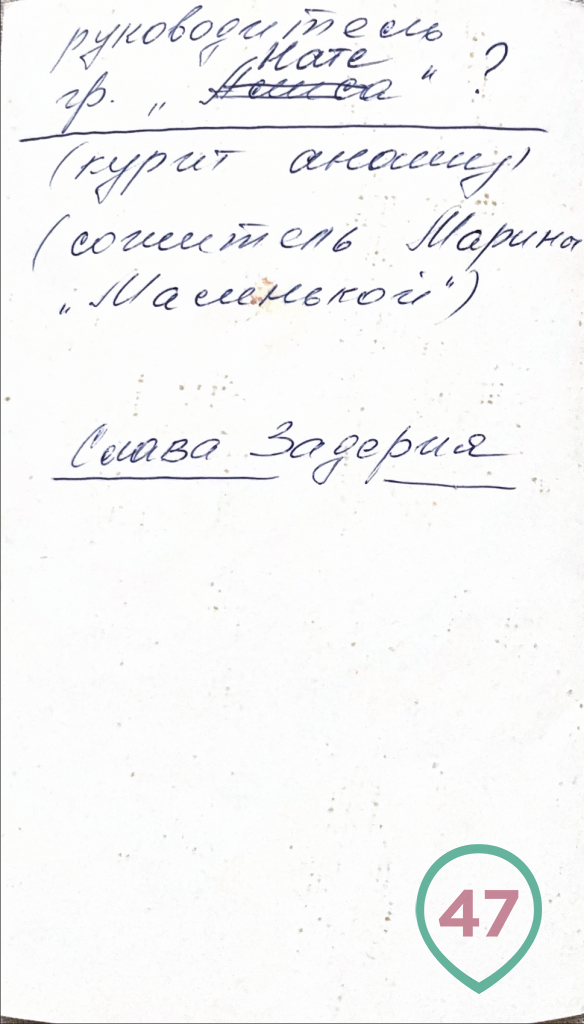 руководитель
Нате
гр. „Алиса“ ?
(курит анашу)
(сожитель Марины
„Маленькой“)
Слава Задерия
47